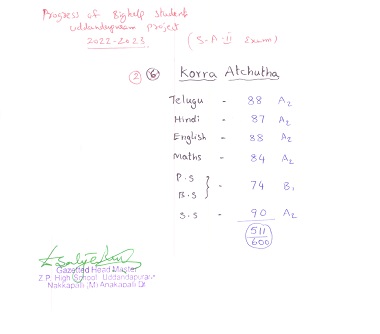 Progress of Bighelp students
Uddandapuram project
2022-2023
( S-A-II Exam )
2 6 Korra Atchutha
Telugu - 88 A2
Hindi - 87 A2
English - 88 A2
Maths - 84 A2
P.S
B.S } - 74 B1
S.S - 90 A2
511
600
Gazetted Head Master
Z.P. High School Uddandapuram
Nakkapalli (M) Anakapalli Dt